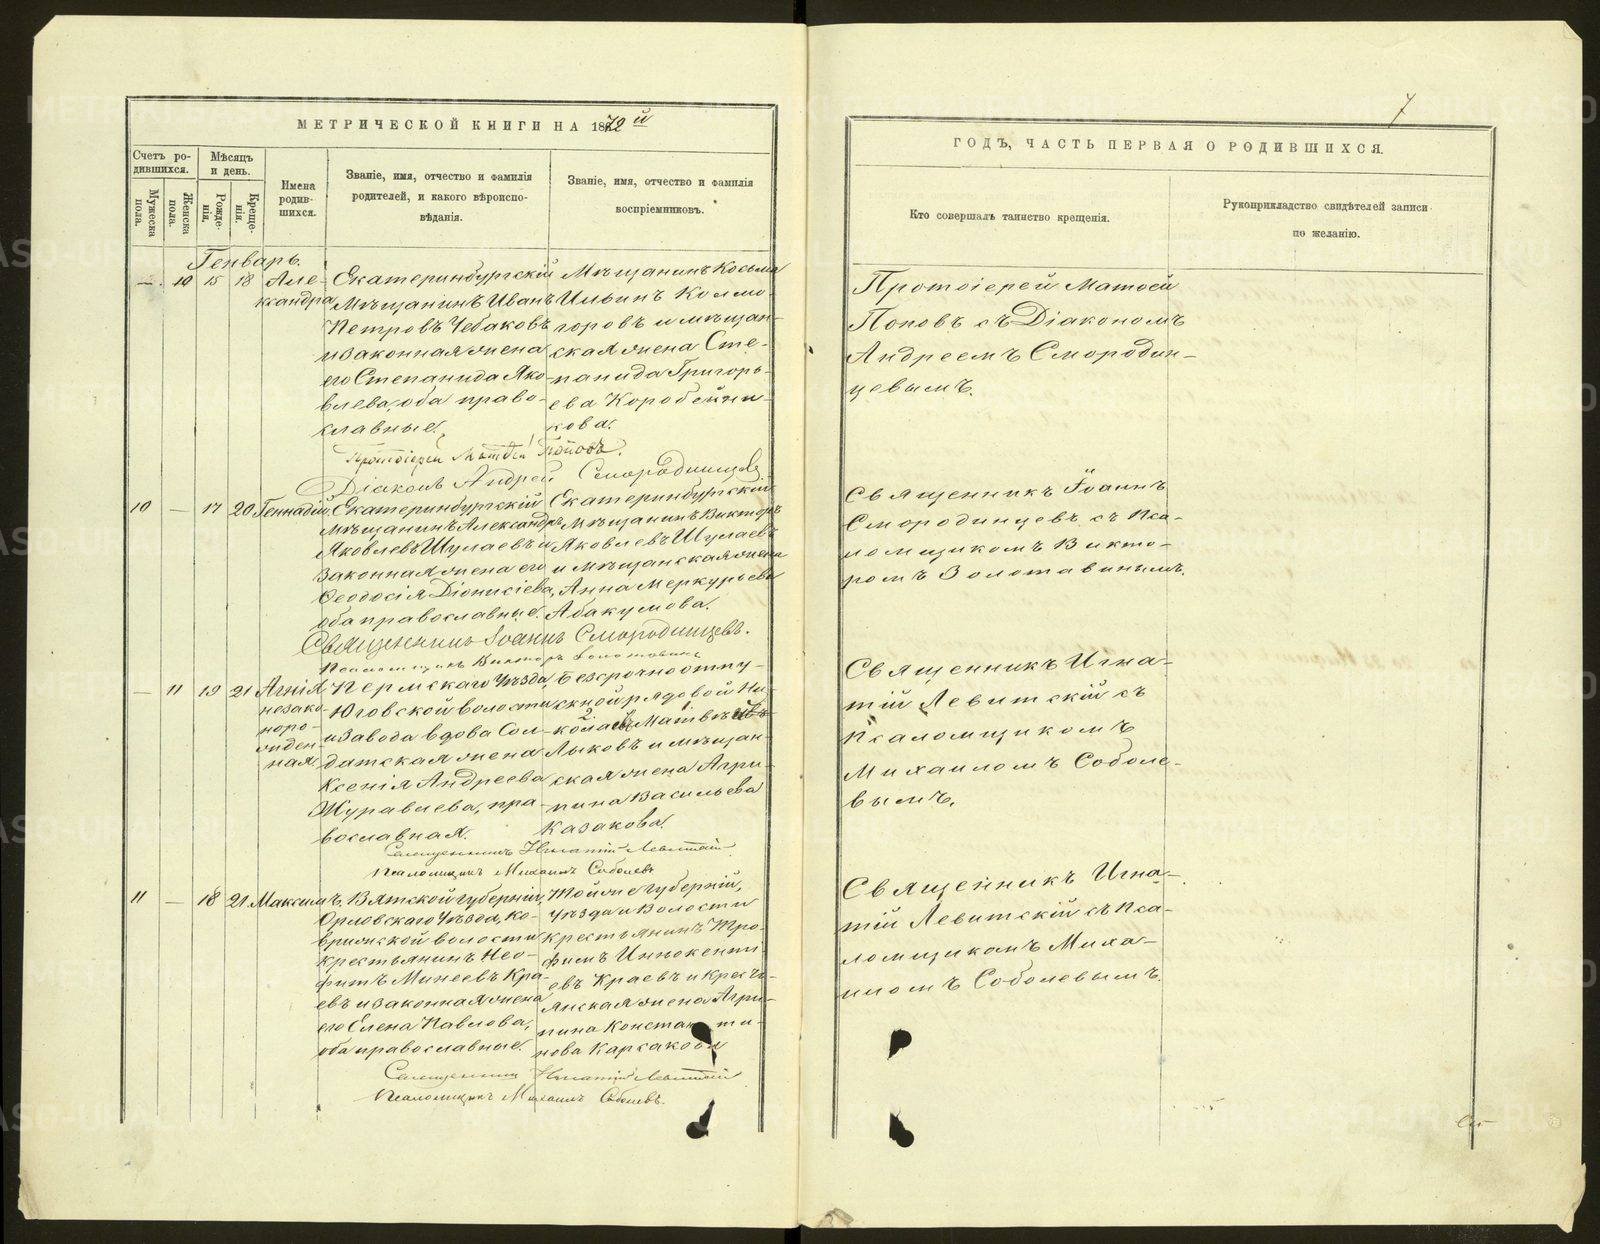 МЕТРИЧЕСКОЙ КНИГИ НА 1872 й
Счетъ ро-
дившихся.
Мѣсяцъ
и день.
Мужеска
пола.
Женска
пола.
Рожде-
нія.
Креще-
нія.
Имена
родив-
шихся.
Званіе, имя, отчество и фамилія
родителей, и какого вѣроиспо-
вѣданія.
Званіе, имя, отчество и фамилія
воспріемниковъ.
Генварь.
10 15 18 Але-
ксандра
Екатеринбургскій
Мѣщанинъ Иванъ
Петровъ Чебаковъ
и законная жена
его Степанида Яко-
влева, оба право-
славные.
Мѣщанинъ Косьма
Ильинъ Колмо
горовъ и мѣщан-
ская жена Сте-
панида Григорь-
ева Коробейни-
кова.
Протоіерей Матѳей Поповъ.
Діаконъ Андрей Смородинцевъ
10 — 17 20 Геннадій
Екатеринбургскій
мѣщанинъ Александръ
Яковлевъ Шулаевъ и
законная жена его
Ѳеодосія Діонисіева,
оба православные.
Екатеринбургскій
Мѣщанинъ Викторъ
Яковлевъ Шулаевъ
и мѣщанская жена
Анна Меркурьева
Абакумова.
Священникъ Іоаннъ Смородинцевъ.
Псаломщикъ Викторъ Золотавинъ
— 11 19 21 Агнія
незако-
норо-
жден-
ная
Пермскаго Уѣзда,
Юговской волости
и Завода вдова Сол-
датская жена
Ксенія Андреева
Журавлева, пра-
вославная.
Безсрочноотпу-
скной рядовой Ни-
колай Матвѣевъ
Лыковъ и мѣщан-
ская жена Агри-
пина Васильева
Казакова.
Священникъ Игнатій Левитскій
Псаломщикъ Михаилъ Соболевъ
11 — 18 21 Максимъ
Вятской губерніи,
Орловскаго Уѣзда, Ко-
врижской волости
крестьянинъ Нео-
фитъ Минеевъ Кра-
евъ и законная жена
его Елена Павлова,
оба православные.
Той же губерніи,
уѣзда и Волости
крестьянинъ Тро-
фимъ Иннокенті-
евъ Краевъ и кресть-
янская жена Агри-
пина Константи-
нова Карсакова
Священникъ Игнатій Левитскій
Псаломщикъ Михаилъ Соболевъ.
7
ГОДЪ, ЧАСТЬ ПЕРВАЯ О РОДИВШИХСЯ.
Кто совершалъ таинство крещенія.
Рукоприкладство свидѣтелей записи
по желанію.
Протоіерей Матѳей
Поповъ съ Діакономъ
Андреемъ Смородин-
цевымъ.
Священникъ Іоаннъ
Смородинцевъ съ Пса-
ломщикомъ Викто-
ромъ Золотавинымъ.
Священникъ Игна-
тій Левитскій съ
Псаломщикомъ
Михаиломъ Соболе-
вымъ.
Священникъ Игна-
тій Левитскій съ Пса-
ломщикомъ Миха-
иломъ Соболевымъ.